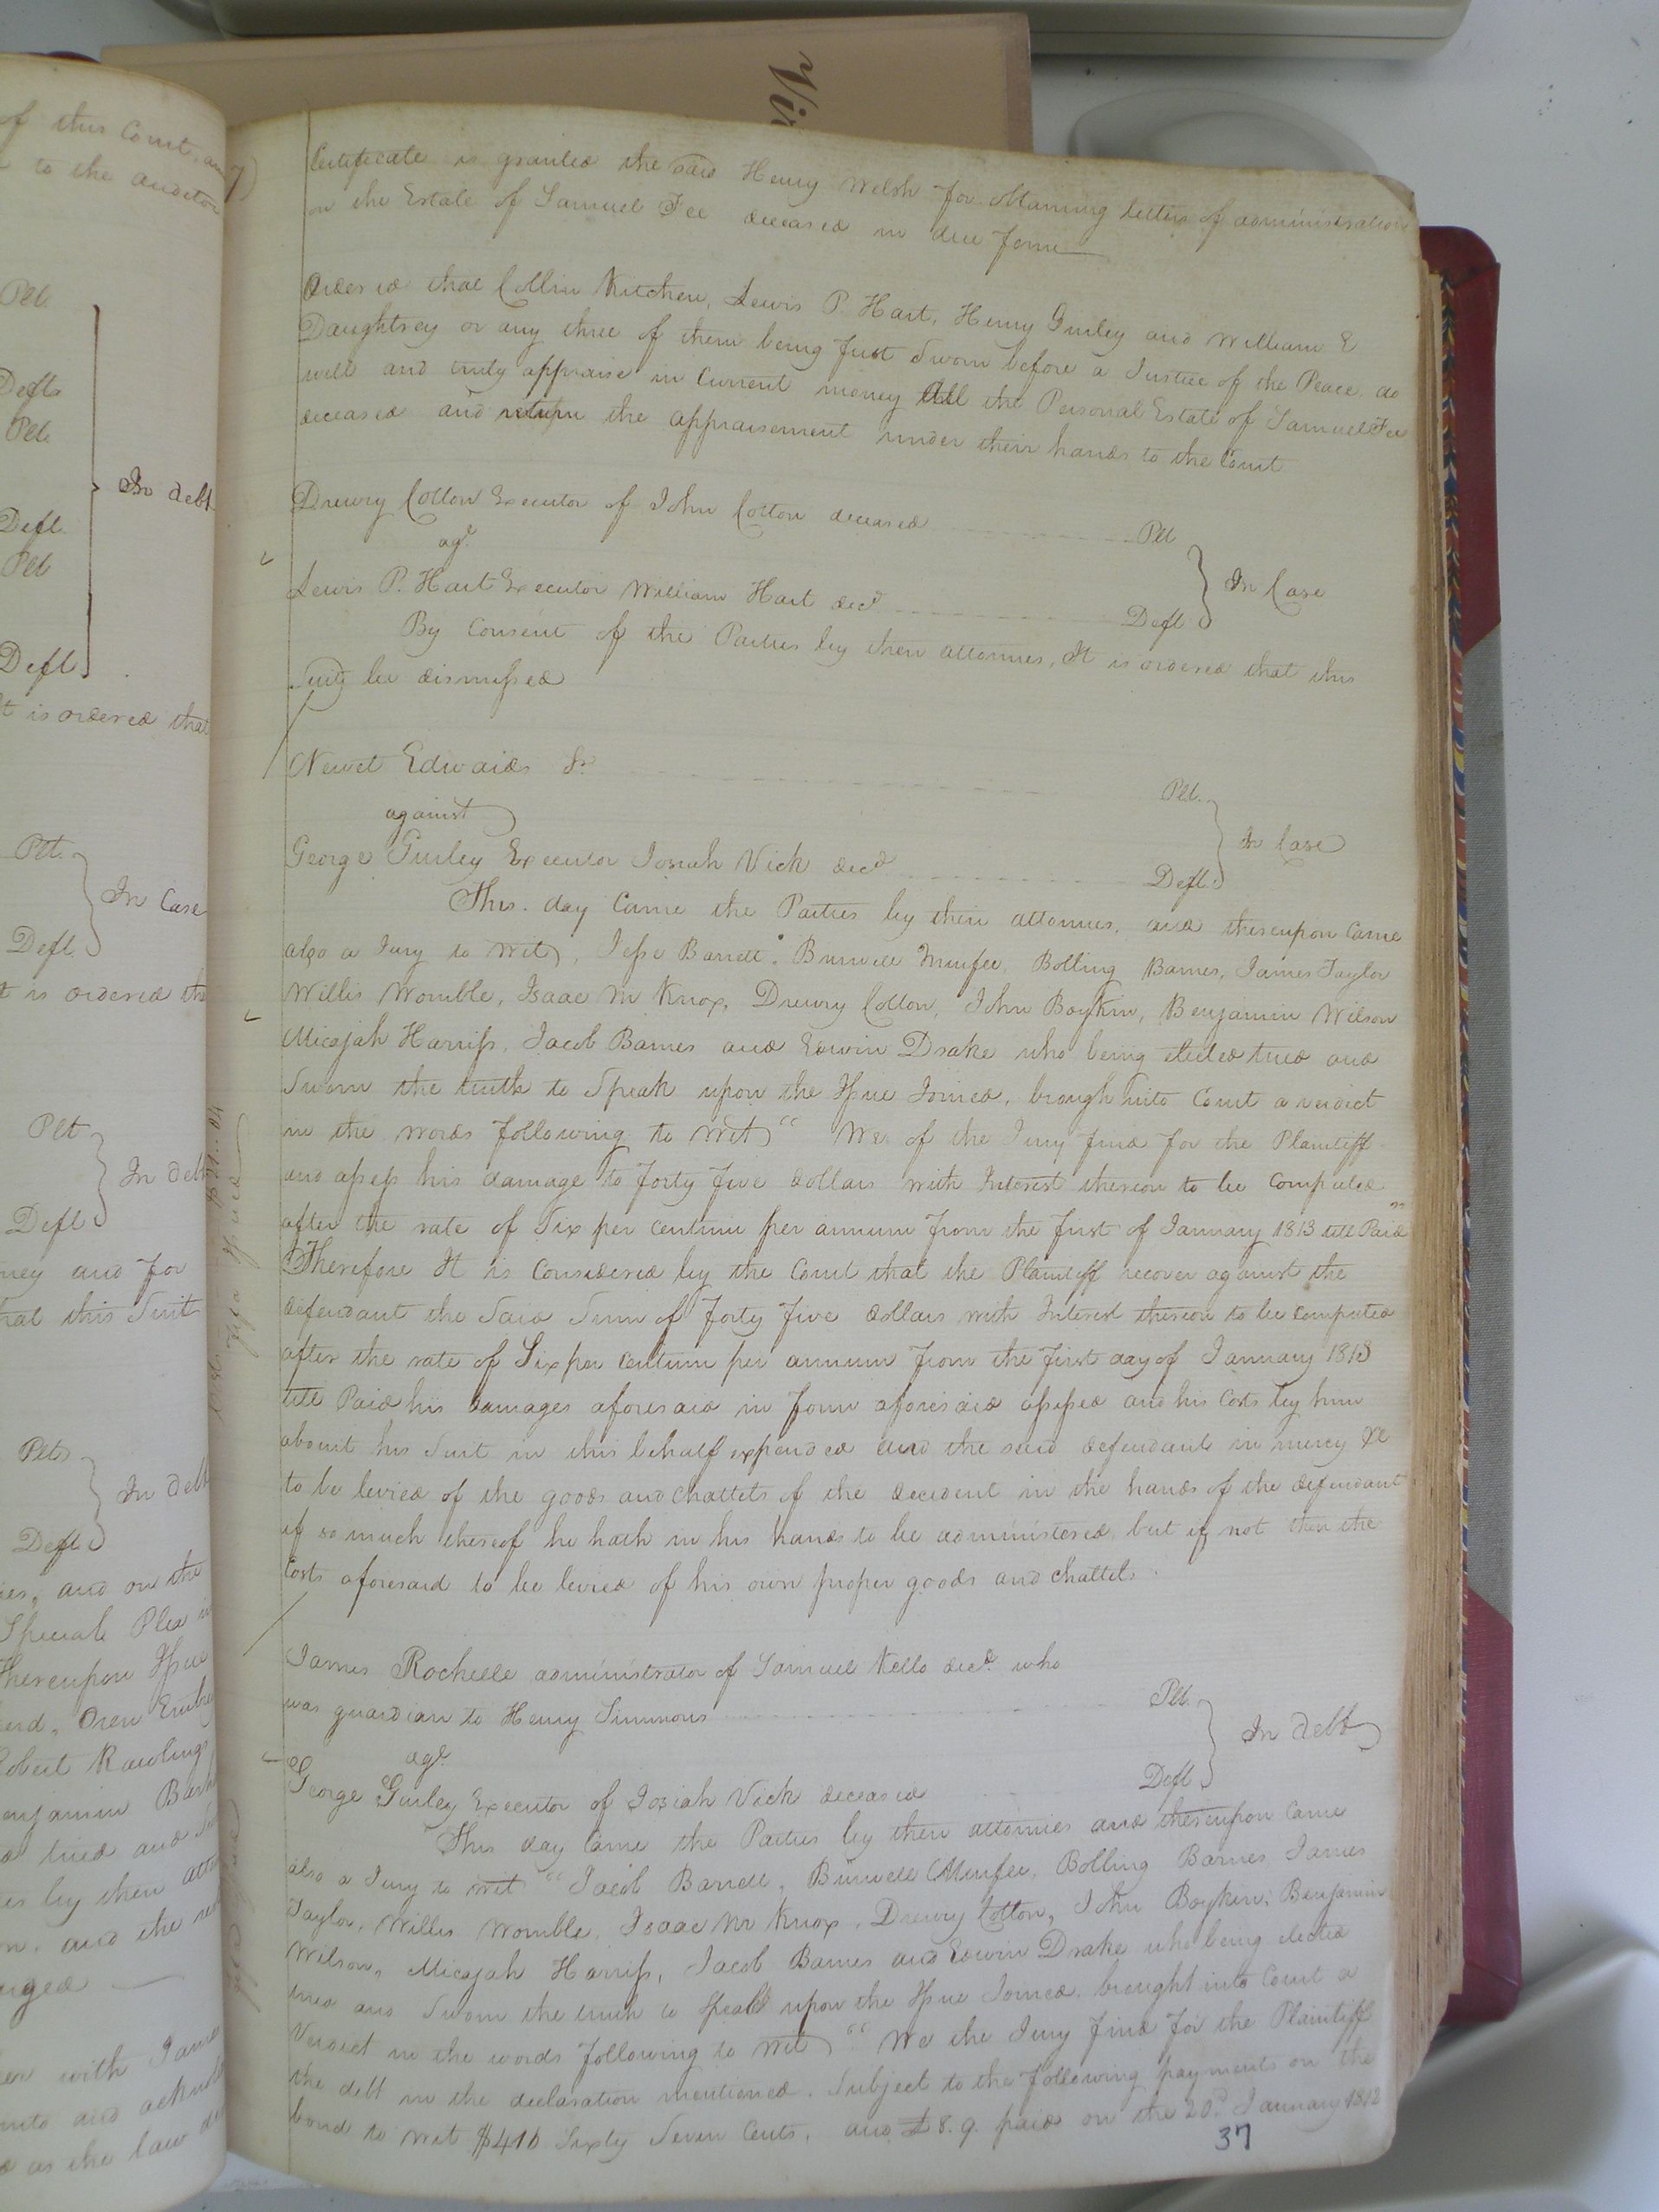 of this Court, and
to the auditor
Plt.
Defts
Plt.
In debt
Deft.
Plt
Deft
It is ordered that
Plt.
In Case
Deft.
it is ordered tha
Plt
In deb
Deft
ney and for
hat this Suit
Plts
In deb
Deft
ies, and on the
Special Plea in
thereupon Issue
Robert Rawlings
enjamin
tried and
es by their
and the
arged
with James
into and
as the law
Vir
7)
Certificate is granted the said Henry Welsh for obtaining letters of administration
on the Estate of Samuel Fee deceased in due form
Ordered that Collin Kitchen, Lewis P. Hart, Henry Gurley and William E
Daughtrey or any three of them being first Sworn before a Justice of the Peace do
well and truly appraise in Current money all the Personal Estate of Samuel Fee
deceased and return the appraisement under their hands to the Court
Drewry Cotton Executor of John Cotton deceased Plt
agt.
In Case
Lewis P. Hart Executor William Hart decd Deft
By Consent of the Parties by their attornies, It is ordered that this
Suit be dismissed
Newet Edwards Sr. Plt.
against
In Case
George Gurley Executor Josiah Vick decd Deft.
This day Came the Parties by their attornies, and thereupon Came
also a Jury to Wit, Jesse Barrett, Burwell Murfee, Bolling Barnes, James Taylor
Willis Womble, Isaac M Knox, Drewry Cotton, John Boykin, Benjamin Wilson
Micajah Harriss, Jacob Barnes and Edwin Drake who being elected tried and
Sworn the truth to Speak upon the Issue Joined, brough into Court a verdict
in the words following to Wit "We of the Jury find for the Plaintiff
and assess his damage to forty five dollars with Interest thereon to be Computed
after the rate of Six per centum per annum from the first of January 1813 till Paid"
Therefore It is Considered by the Court that the Plaintiff recover against the
defendant the Said Sum of forty five dollars with Interest thereon to be computed
after the rate of Six per centum per annum from the first day of January 1813
till Paid his damages aforesaid in form aforesaid assessed and his Costs by him
about his Suit in this behalf expended and the said defendant in mercy &c
to be levied of the goods and Chattels of the decedent in the hands of the defendant
if so much thereof he hath in his hands to be administered, but if not then the
Costs aforesaid to be levied of his own proper goods and chattels.
James Rochelle administrator of Samuel Kello decd. who
was guardian to Henry Simmons Plt.
agt.
In debt
George Gurley Executor of Josiah Vick deceased Deft
This day Came the Parties by their attornies and thereupon Came
also a Jury to wit "Jacob Barrett, Burwell Murfee, Bolling Barnes, James
Taylor, Willis Womble, Isaac M Knox, Drewry Cotton, John Boykin, Benjamin
Wilson, Micajah Harriss, Jacob Barnes and Edwin Drake who being elected
tried and Sworn the truth to Speak upon the Issue Joined, brought into Court a
Verdict in the words following to Wit "We the Jury find for the Plaintiff
the debt in the declaration mentioned. Subject to the following payments on the
bond to wit $416 Sixty Seven Cents, and £8.9. paid on the 20th January 1812
37